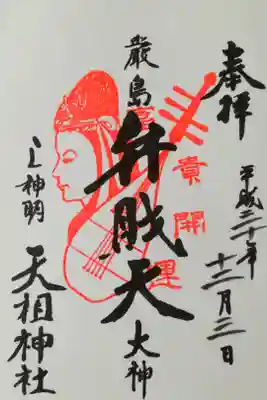 奉拝
平成二十年
十二月三日
厳島
弁財天
大神
貴開運
上神明
天祖神社